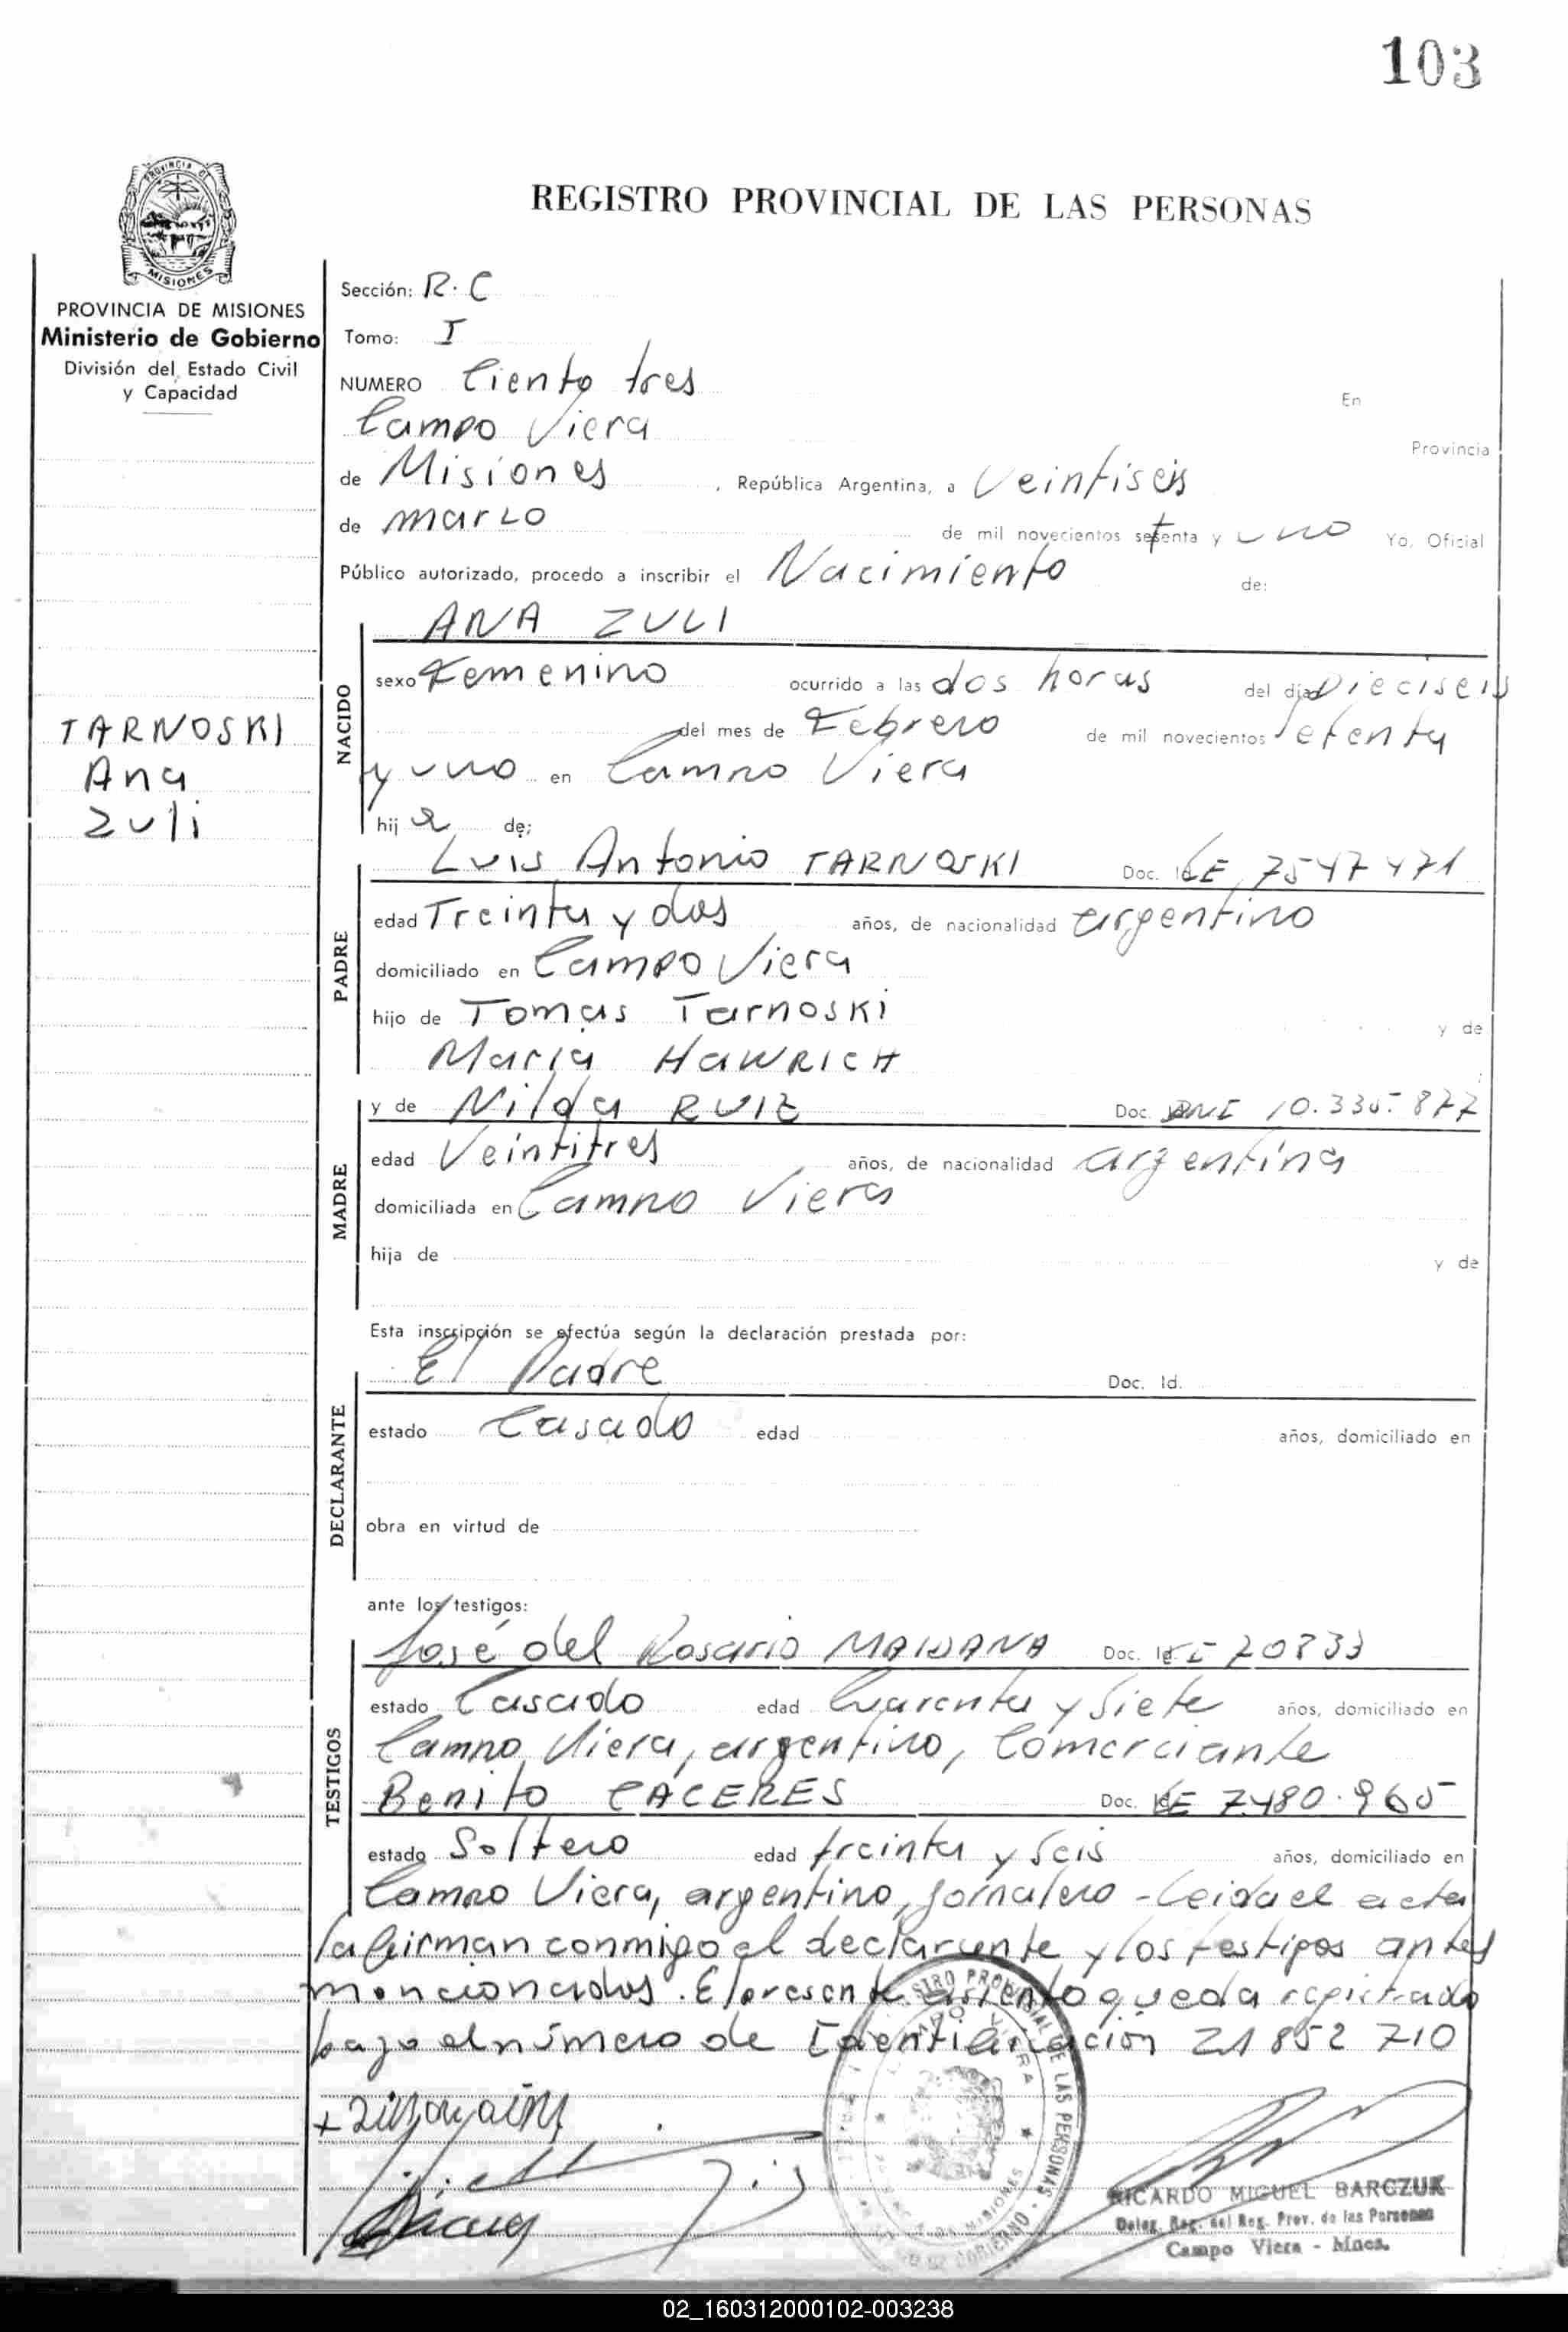 103
REGISTRO PROVINCIAL DE LAS PERSONAS
PROVINCIA DE MISIONES
Ministerio de Gobierno
División del Estado Civil
y Capacidad
TARNOSKI
Ana
Zuli
Sección: R.C
Tomo: I
NUMERO Ciento tres En
Campo Viera Provincia
de Misiones, República Argentina, a Veintiseis
de marzo de mil novecientos setenta y uno Yo, Oficial
Público autorizado, procedo a inscribir el Nacimiento de:
NACIDO
ANA ZULI
sexo Femenino ocurrido a las dos horas del día Dieciseis
del mes de Febrero de mil novecientos Setenta
y uno en Campo Viera
hija de:
PADRE
Luis Antonio TARNOSKI Doc. LE 7547471
edad Treinta y dos años, de nacionalidad argentino
domiciliado en Campo Viera
hijo de Tomas Tarnoski y de
Maria HAWRICH
MADRE
y de Nilda RUIZ Doc. DNI 10.335.877
edad Veintitres años, de nacionalidad argentina
domiciliada en Campo Viera
hija de y de
Esta inscripción se efectúa según la declaración prestada por:
DECLARANTE
El Padre Doc. Id.
estado Casado edad años, domiciliado en
obra en virtud de
ante los testigos:
TESTIGOS
José del Rosario MAIDANA Doc. Id. 20833
estado Casado edad Cuarenta y Siete años, domiciliado en
Campo Viera, argentino, Comerciante
Benito CACERES Doc. LE 7480.965
estado Soltero edad treinta y Seis años, domiciliado en
Campo Viera, argentino, Jornalero - Leida el acta
la firman conmigo el declarante y los testigos antes
mencionados. El presente asiento queda registrado
bajo el número de Identificación 21 852 710
RICARDO MIGUEL BARCZUK
Deleg. Reg. del Reg. Prov. de las Personas
Campo Viera - Mnes.
02_160312000102-003238